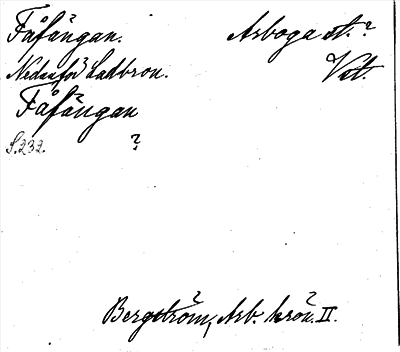 Fåfängan. Arboga st.?
Nedanför Ladbron. Vstl.
Fåfängan
S. 232. ?
Bergström, Arb. krön. II.